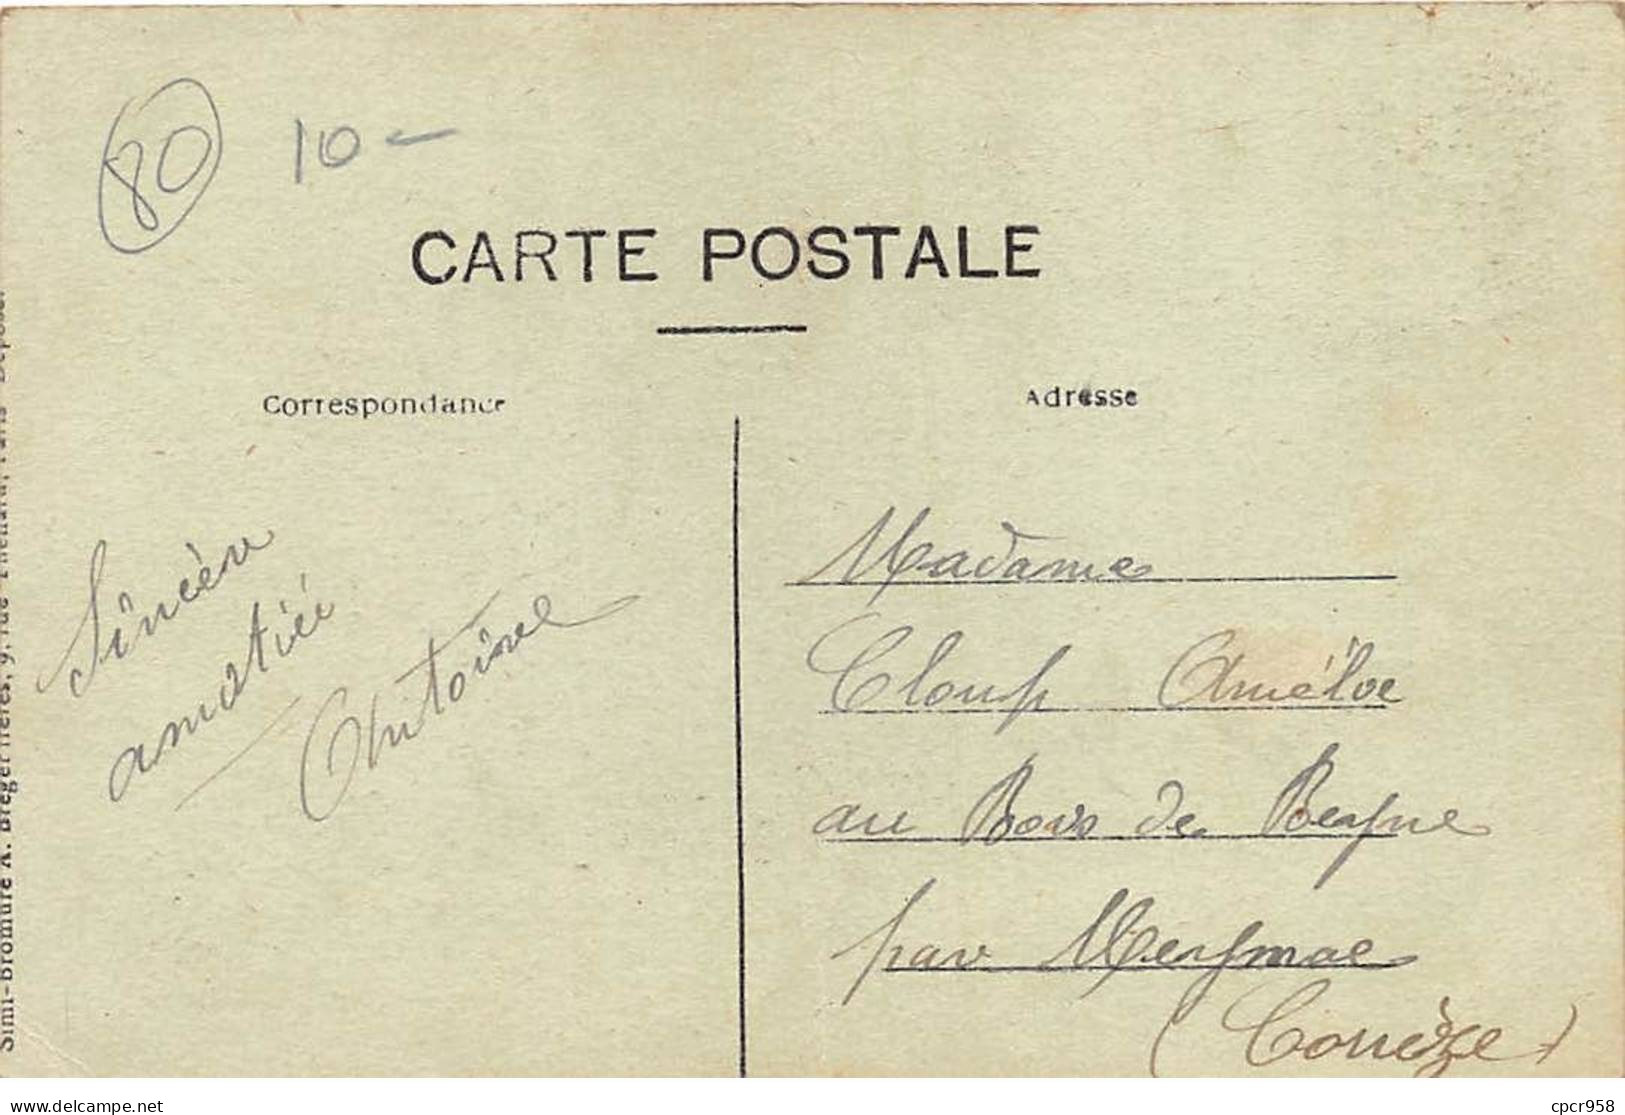 80 10-
CARTE POSTALE
Correspondance
Adresse
Sincère
amitié
Antoine
Madame
Cloup Amélie
au Bois de
par Meymac
(Corrèze)
Simi-bromure A. Breger frères, 9, rue Thénard, Paris Déposé.
delcampe.net
cpcr958